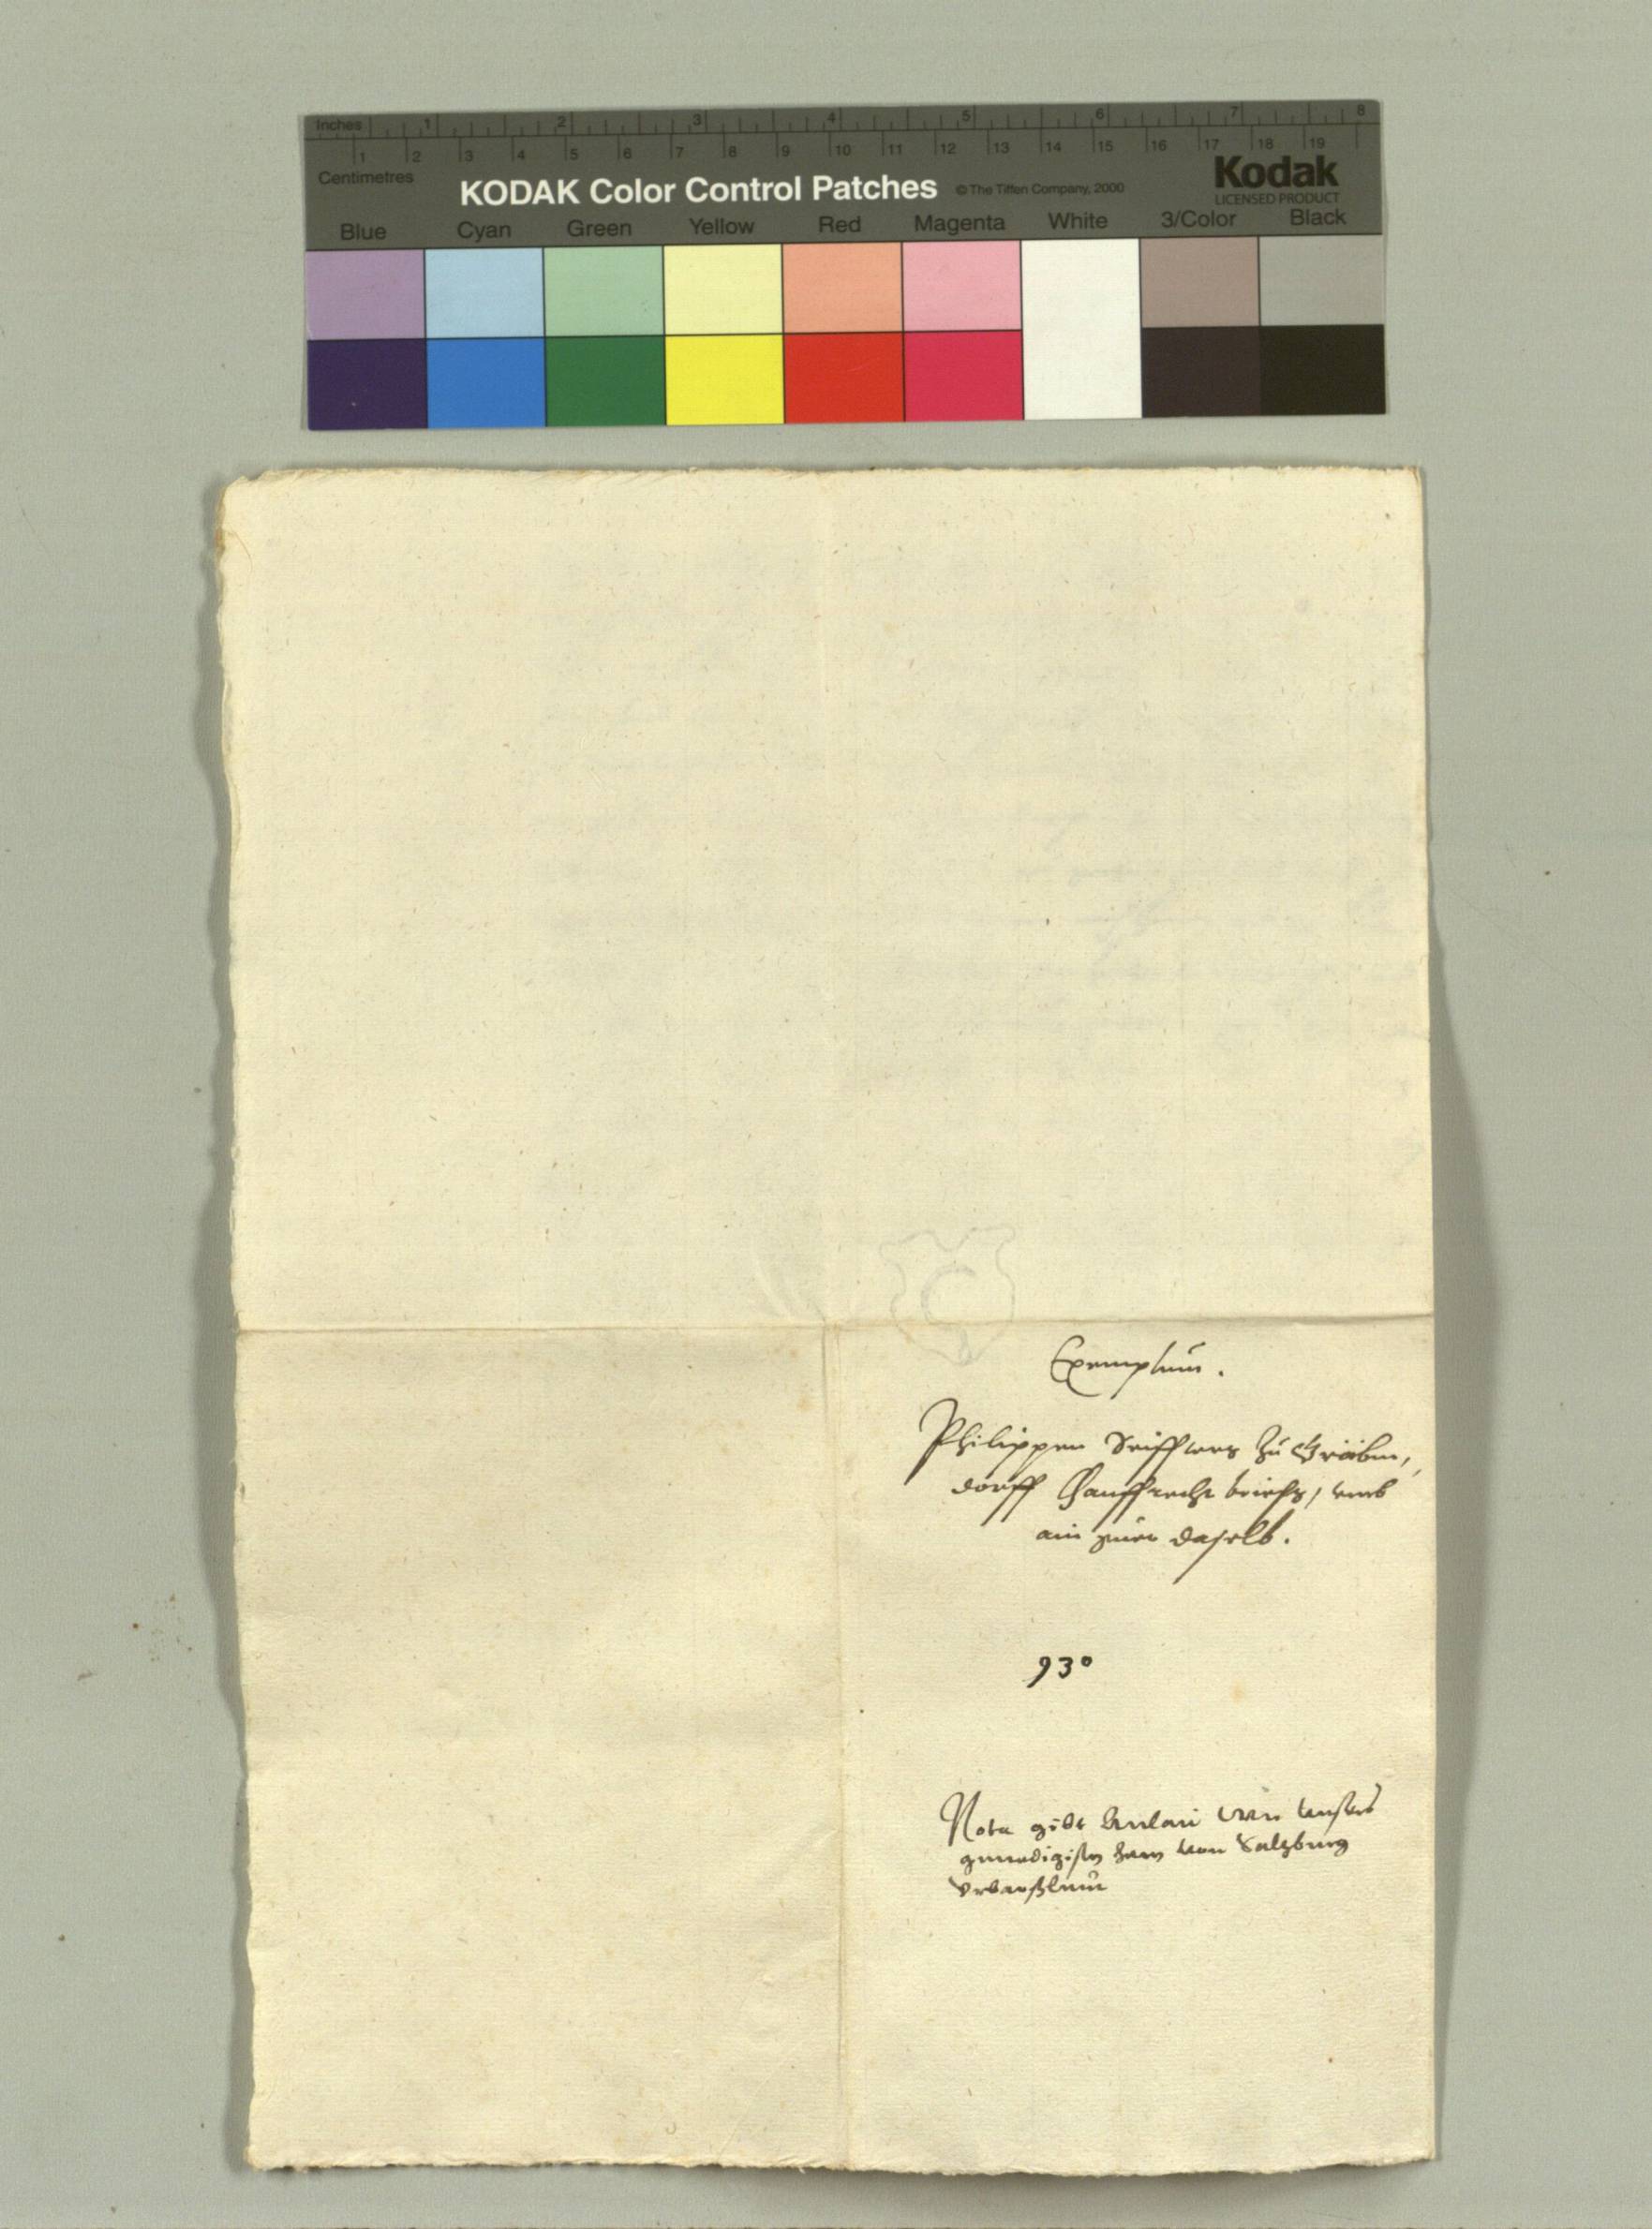 Inches 1 2 3 4 5 6 7 8
1 2 3 4 5 6 7 8 9 10 11 12 13 14 15 16 17 18 19
Centimetres
KODAK Color Control Patches © The Tiffen Company, 2000 Kodak
LICENSED PRODUCT
Blue Cyan Green Yellow Red Magenta White 3/Color Black
Exemplum.
Philippen zu
dorff Khauffrecht brieffs, umb
ain daselb.
93°
Nota gibt von unsers
genedigisten hern von Salzburg